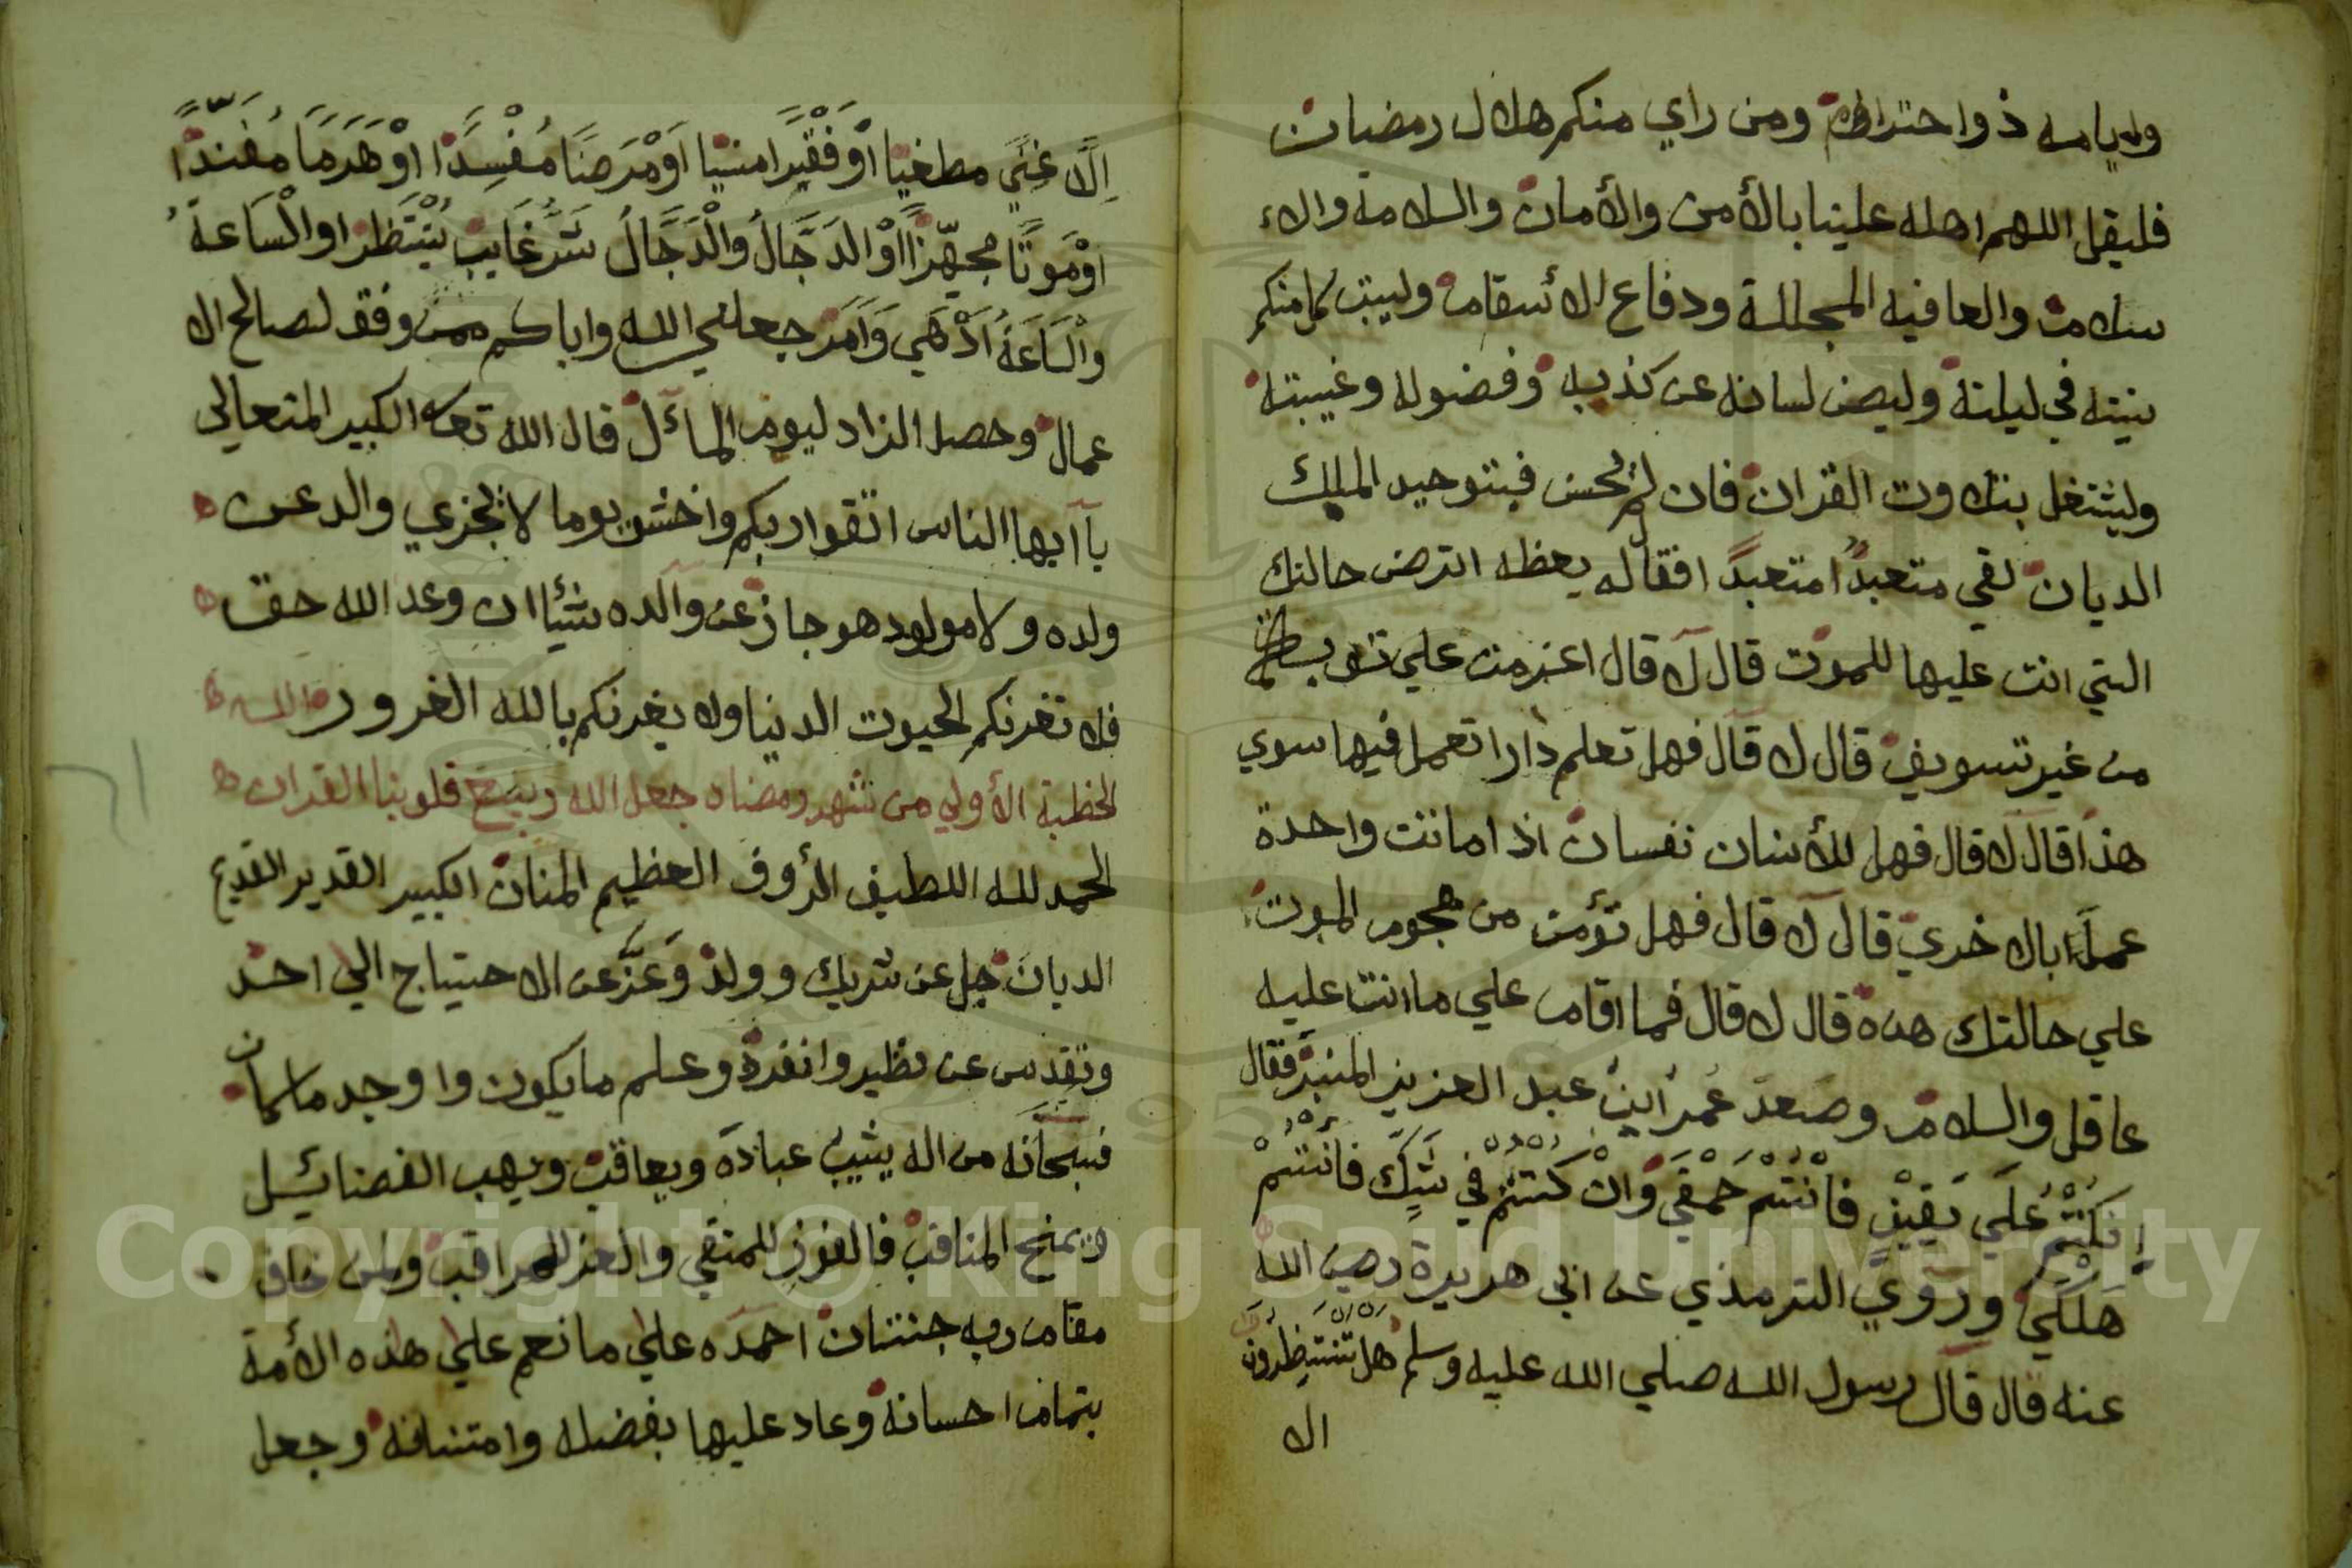 ولا يامنه ذوا حتراطه ومن راي منكم هلال رمضان
فليقل اللهم اهله علينا بالأمن والأمان والسلامة والا
سلام والعافيه المجللة ودفاع الأسقام وليبت كل منكم
نيته في ليلته وليصن لسانه عن كذبه وفضوله وغيبته
وليشتغل بتلاوت القران فان لم يحسن فبتوحيد المليك
الديان لقي متعبدا متعبدا فقال له يعظه اترضى حالتك
التي انت عليها للموت قال لا قال اعزمت علي توبة
من غير تسويف قال لا قال فهل تعلم دارا تعمل فيها سوي
هذا قال لا قال فهل للأنسان نفسان اذا ماتت واحدة
عمل بالاخري قال لا قال فهل تؤمن من هجوم الموت
علي حالتك هذه قال لا قال فما اقام علي ما انت عليه
عاقل والسلام وصعد عمر ابن عبد العزيز المنبر فقال
إنكنتم علي يقين فانتم حمقي وان كنتم في شك فانتم
هلكي وروي الترمذي عن ابي هريرة رضي الله
عنه قال قال رسول الله صلي الله عليه وسلم هل تنتظرون
الا
الا غني مطغيا او فقيرا منسيا او مرضا مفسدا او هرما مفندا
او موتا مجهزا او الدجال والدجال شر غايب ينتظر او الساعة
والساعة ادهي وامر جعلني الله واياكم ممن وفق لصالح الا
عمال وحصل الزاد ليوم المآل قال الله تعالى الكبير المتعالي
يا آيها الناس اتقوا ربكم واخشو يوما لا يجزي والد عن
ولده ولا مولود هو جاز عن والده شيئا ان وعد الله حق
فلا تغرنكم الحيوت الدنيا ولا يغرنكم بالله الغرور
الخطبة الأولي من شهر رمضان جعل الله ربيع قلوبنا القران
الحمد لله اللطيف الرؤوف العظيم المنان الكبير القدير القديم
الديان جل عن شريك وولد وعز عن الاحتياج الي احد
وتقدس عن نظير وانفرد وعلم ما يكون واوجد ما كان
فسبحانه من اله يثيب عباده ويعاقب ويهب الفضائل
ويمنح المناقب فالفوز للمتقي والعز للمراقب ولمن خاف
مقام ربه جنتان احمده علي ما نعم علي هذه الأمة
بتمام احسانه وعاد عليها بفضله وامتنانه وجعل
Copyright © King Saud University